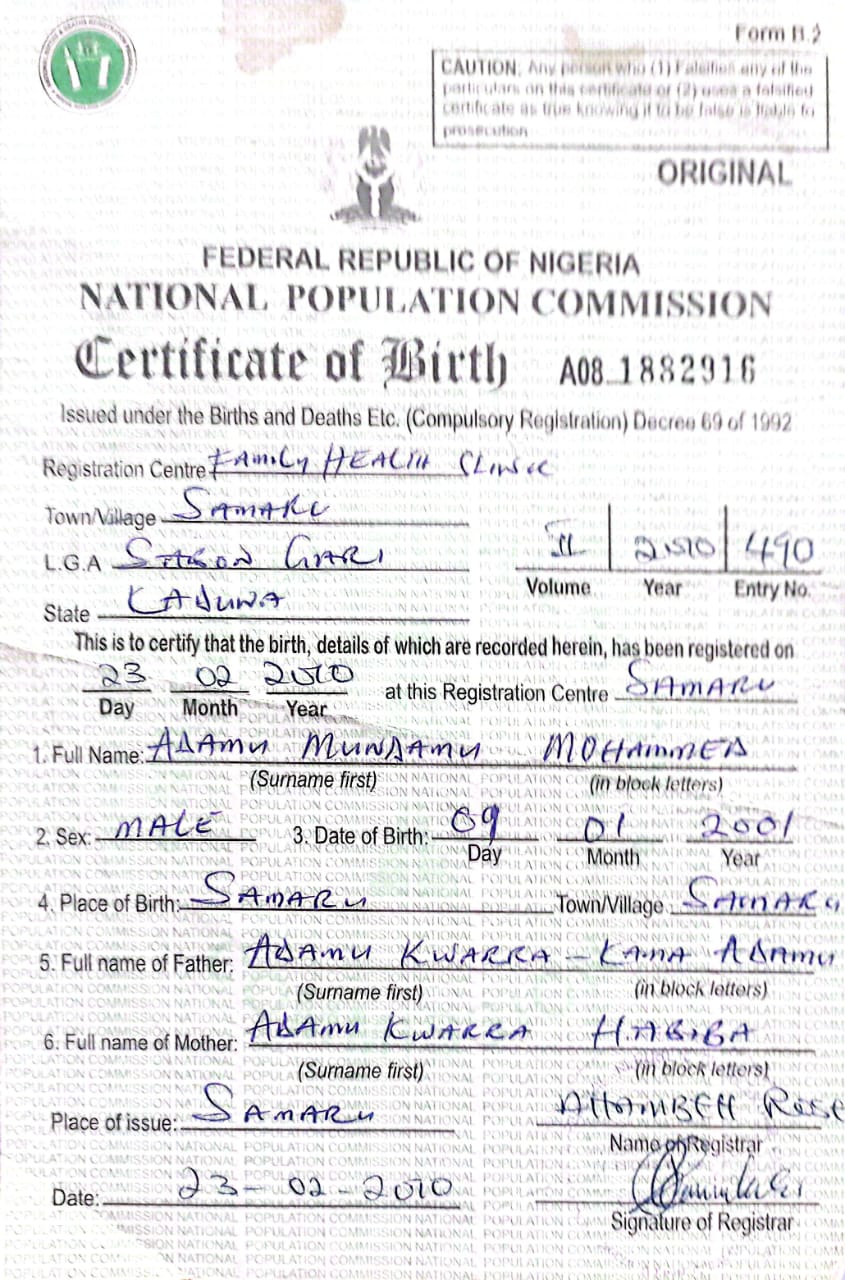 Form B.2
CAUTION: Any person who (1) Falsifies any of the
particulars on this certificate or (2) uses a falsified
certificate as true knowing it to be false is liable to
prosecution
ORIGINAL
FEDERAL REPUBLIC OF NIGERIA
NATIONAL POPULATION COMMISSION
Certificate of Birth A08 1882916
Issued under the Births and Deaths Etc. (Compulsory Registration) Decree 69 of 1992
Registration Centre FAMILY HEALTH CLINIC
Town/Village SAMARU
L.G.A SABON GARI
State KADUNA
II 2010 490
Volume Year Entry No.
This is to certify that the birth, details of which are recorded herein, has been registered on
23 02 2010 at this Registration Centre SAMARU
Day Month Year
1. Full Name: ADAMU MUNDAMU MOHAMMED
(Surname first) (in block letters)
2. Sex: MALE 3. Date of Birth: 09 01 2001
Day Month Year
4. Place of Birth: SAMARU Town/Village SAMARU
5. Full name of Father: ADAMU KWARRA - KANA ADAMU
(Surname first) (in block letters)
6. Full name of Mother: ADAMU KWARRA HABIBA
(Surname first) (in block letters)
Place of issue: SAMARU Rose
Name of Registrar
Date: 23-02-2010
Signature of Registrar